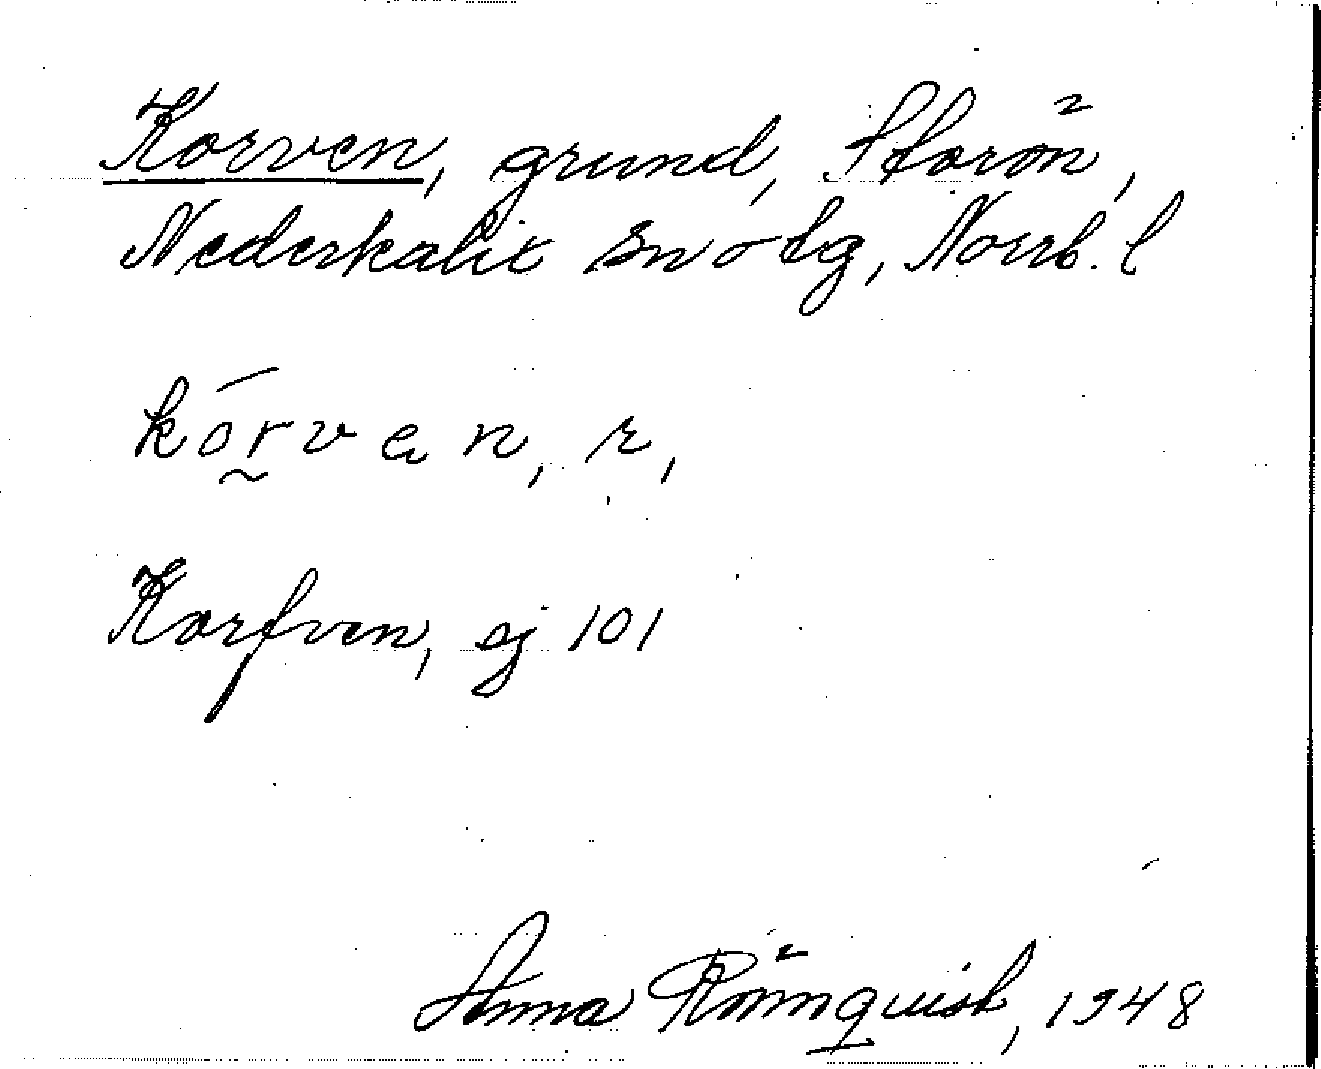 Korven, grund, Storön,
Nederkalix sn o tg, Norrb. l
kórven, r,
Korfven, ej 101
Anna Rönnquist, 1948